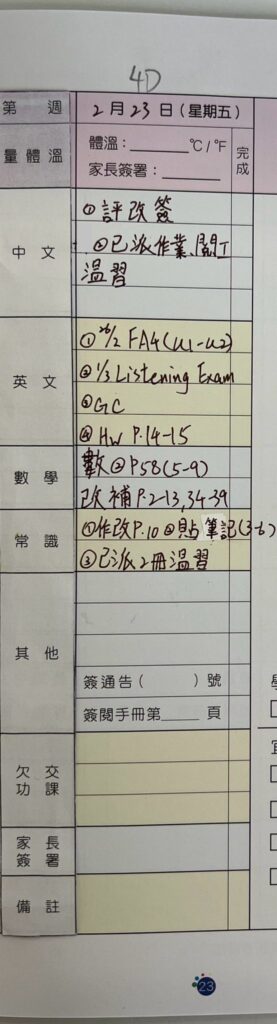 4D
第 週 2月23日(星期五)
量體溫 體溫:______℃/℉ 完成
家長簽署:______
中文 ①評改簽
②已派作業、閱工
溫習
英文 ①26/2 FA4(U1-U2)
②1/3 Listening Exam
③GC
④HW P.14-15
數學 數②P58(5-9)
改補P.2-13,34-39
常識 ①作改P.10②貼筆記(3-6)
③已派2冊溫習
其他
簽通告( )號
簽閱手冊第____頁
欠交功課
家長簽署
備註
23